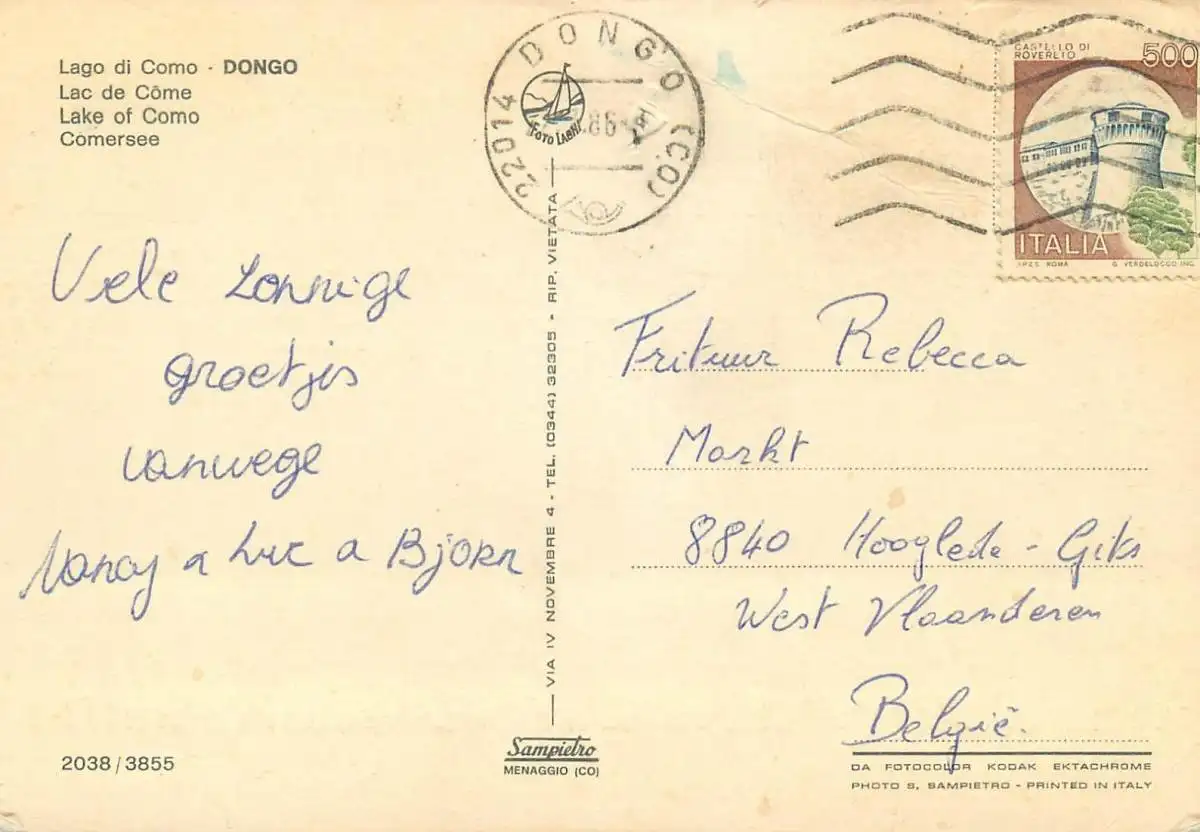 Lago di Como - DONGO
Lac de Côme
Lake of Como
Comersee
22014 DONGO (CO)
86
FOTO LABHI
CASTELLO DI
ROVERETO
500
ITALIA
I.P.Z.S. ROMA
G. VERDELOCCO INC.
Vele zonnige
groetjes
vanwege
Nancy a Luc a Bjorn
VIA IV NOVEMBRE 4 - TEL. (0344) 32305 - RIP. VIETATA
Frituur Rebecca
Markt
8840 Hooglede - Gits
West Vlaanderen
België.
2038/3855
Sampietro
MENAGGIO (CO)
DA FOTOCOLOR KODAK EKTACHROME
PHOTO S. SAMPIETRO - PRINTED IN ITALY